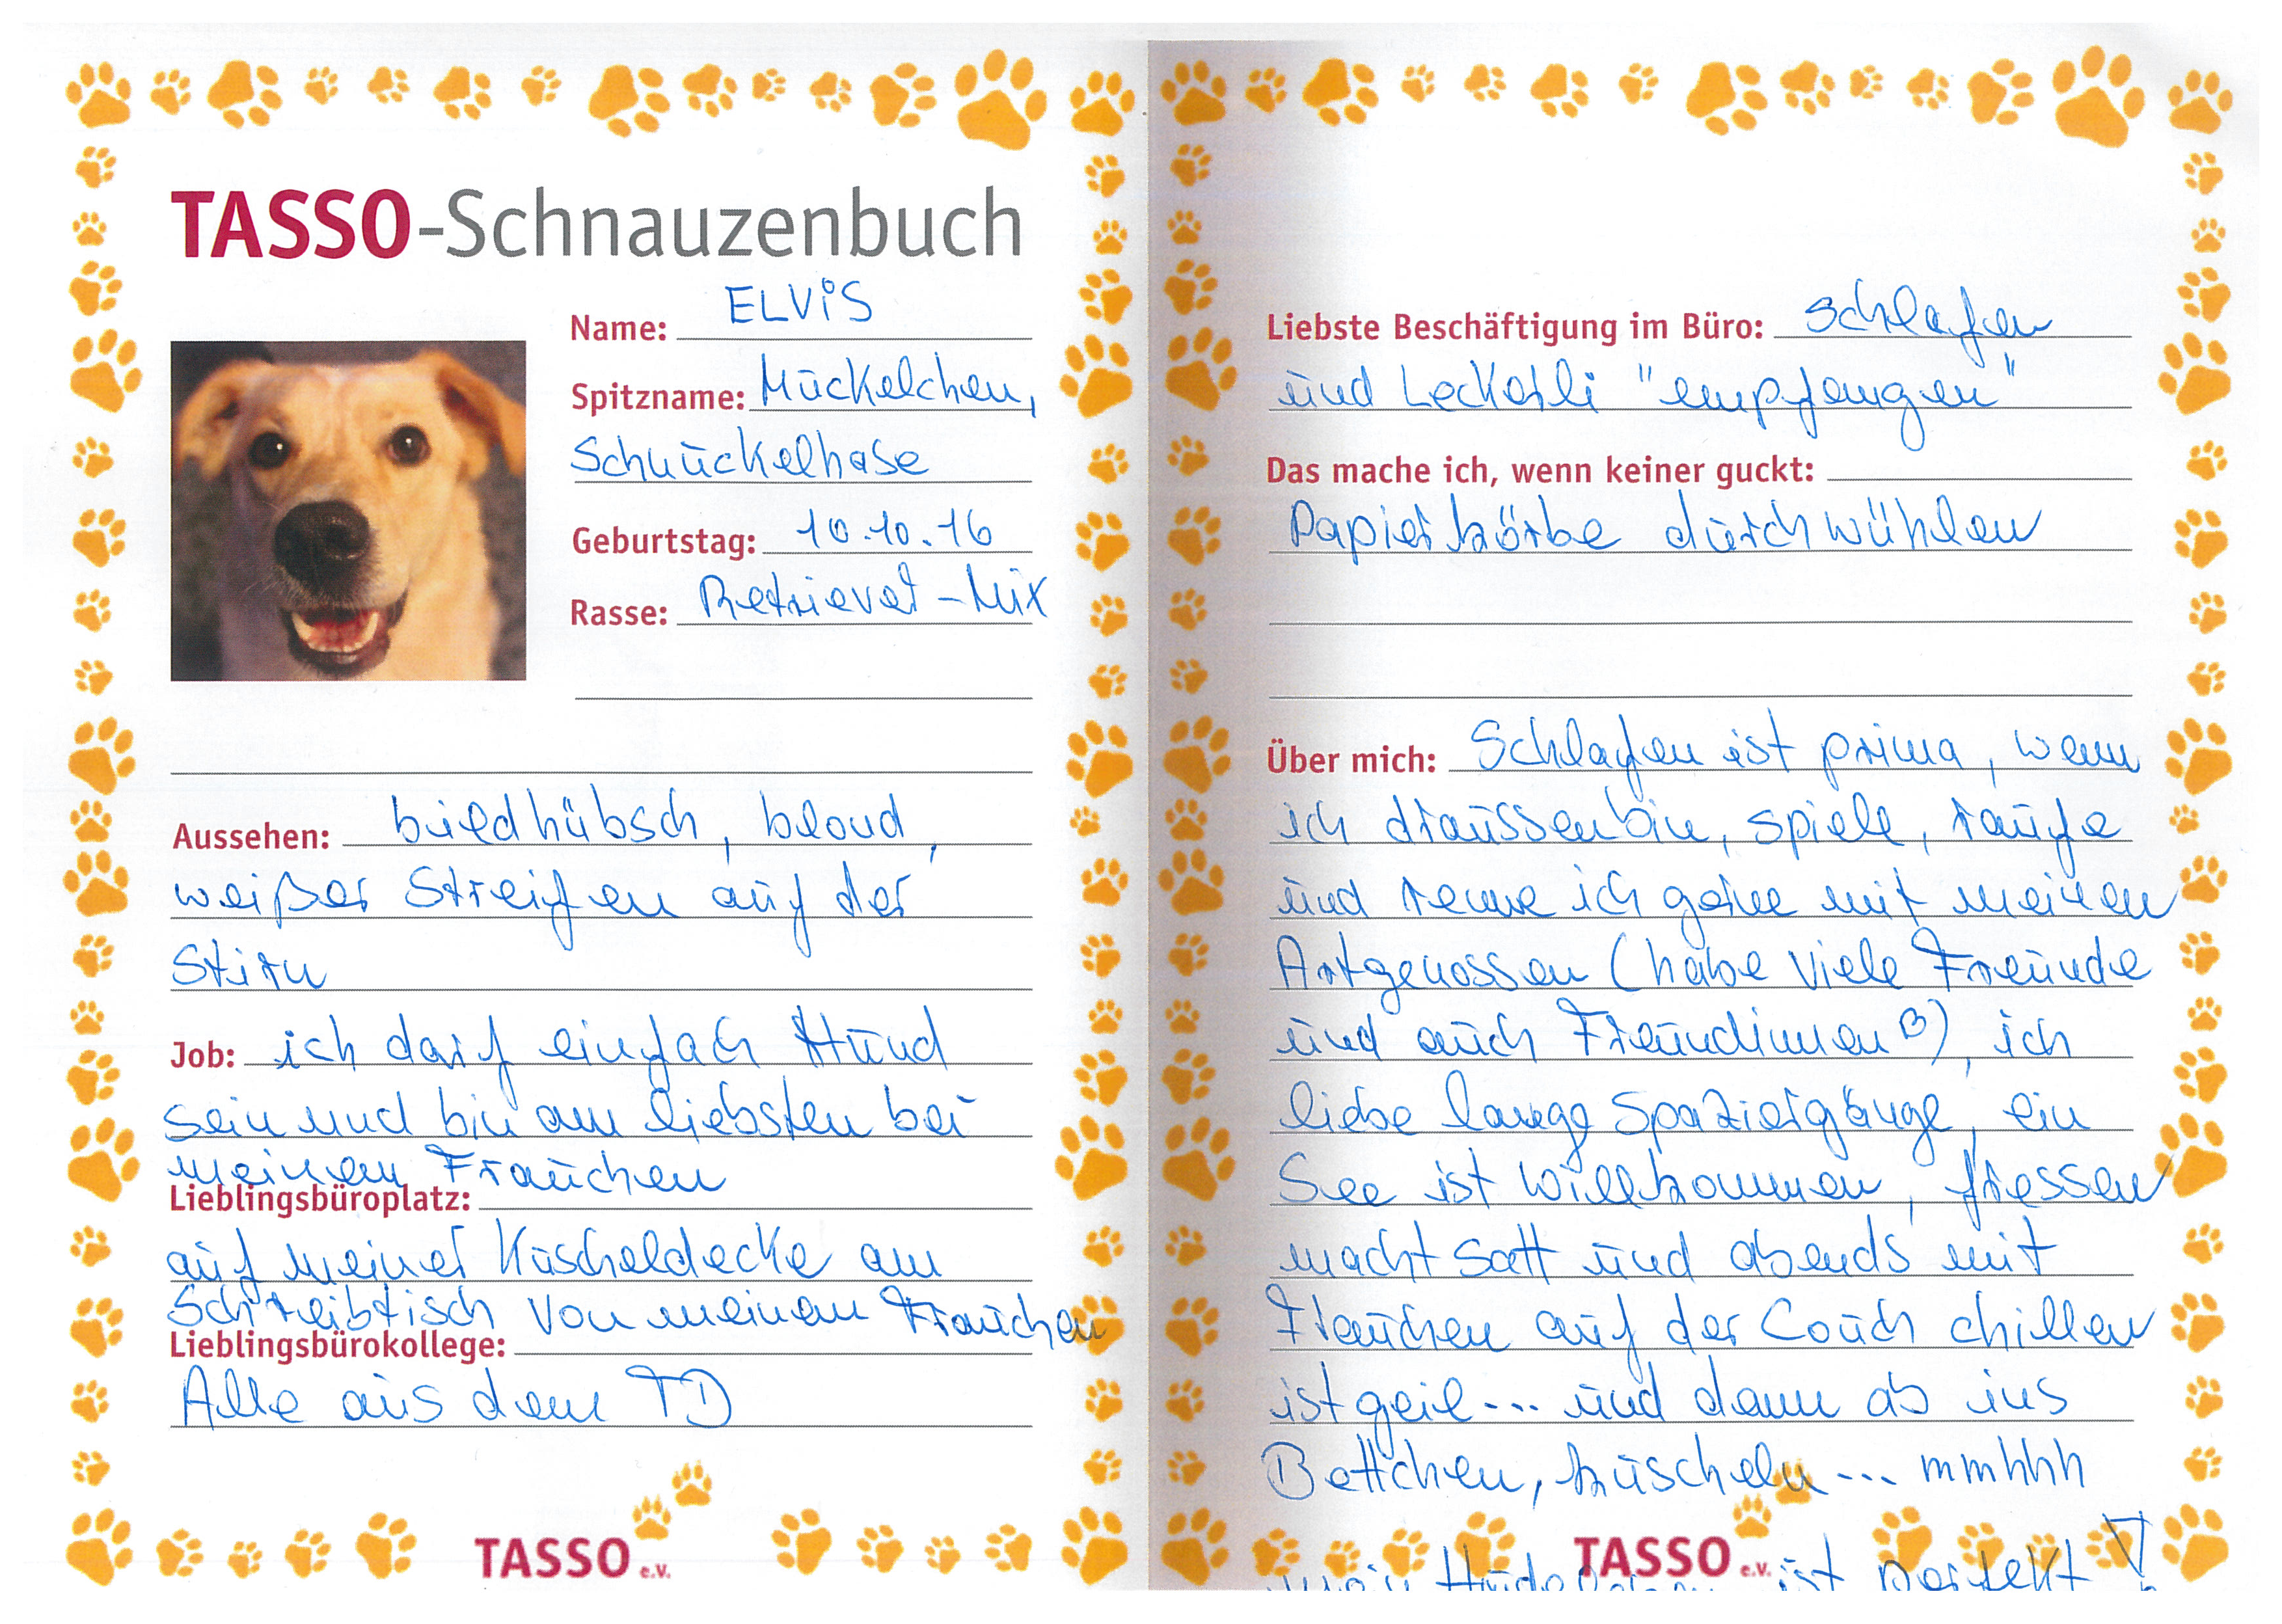 TASSO-Schnauzenbuch
Name: ELViS
Spitzname: Mückelchen,
Schnückelhase
Geburtstag: 10.10.16
Rasse: Retriever-Mix
Aussehen: bildhübsch, blond,
weißer Streifen auf der
Stirn
Job: ich darf einfach Hund
sein und bin am liebsten bei
meinem Frauchen
Lieblingsbüroplatz:
auf meiner Kuscheldecke am
Schreibtisch von meinem Frauchen
Lieblingsbürokollege:
Alle aus dem TD
TASSO e.V.
Liebste Beschäftigung im Büro: schlafen
und Leckerli "empfangen"
Das mache ich, wenn keiner guckt:
Papierkörbe durchwühlen
Über mich: Schlafen ist prima, wenn
ich draussen bin, spiele, raufe
und renne ich gerne mit meinen
Artgenossen (habe viele Freunde
und auch Freundinnen B), ich
liebe lange Spaziergänge, ein
See ist willkommen, fressen
macht satt und abends mit
Frauchen auf der Couch chillen
ist geil... und dann ab ins
Bettchen, kuscheln... mmhhh
mein Hundeleben ist perfekt!
TASSO e.V.